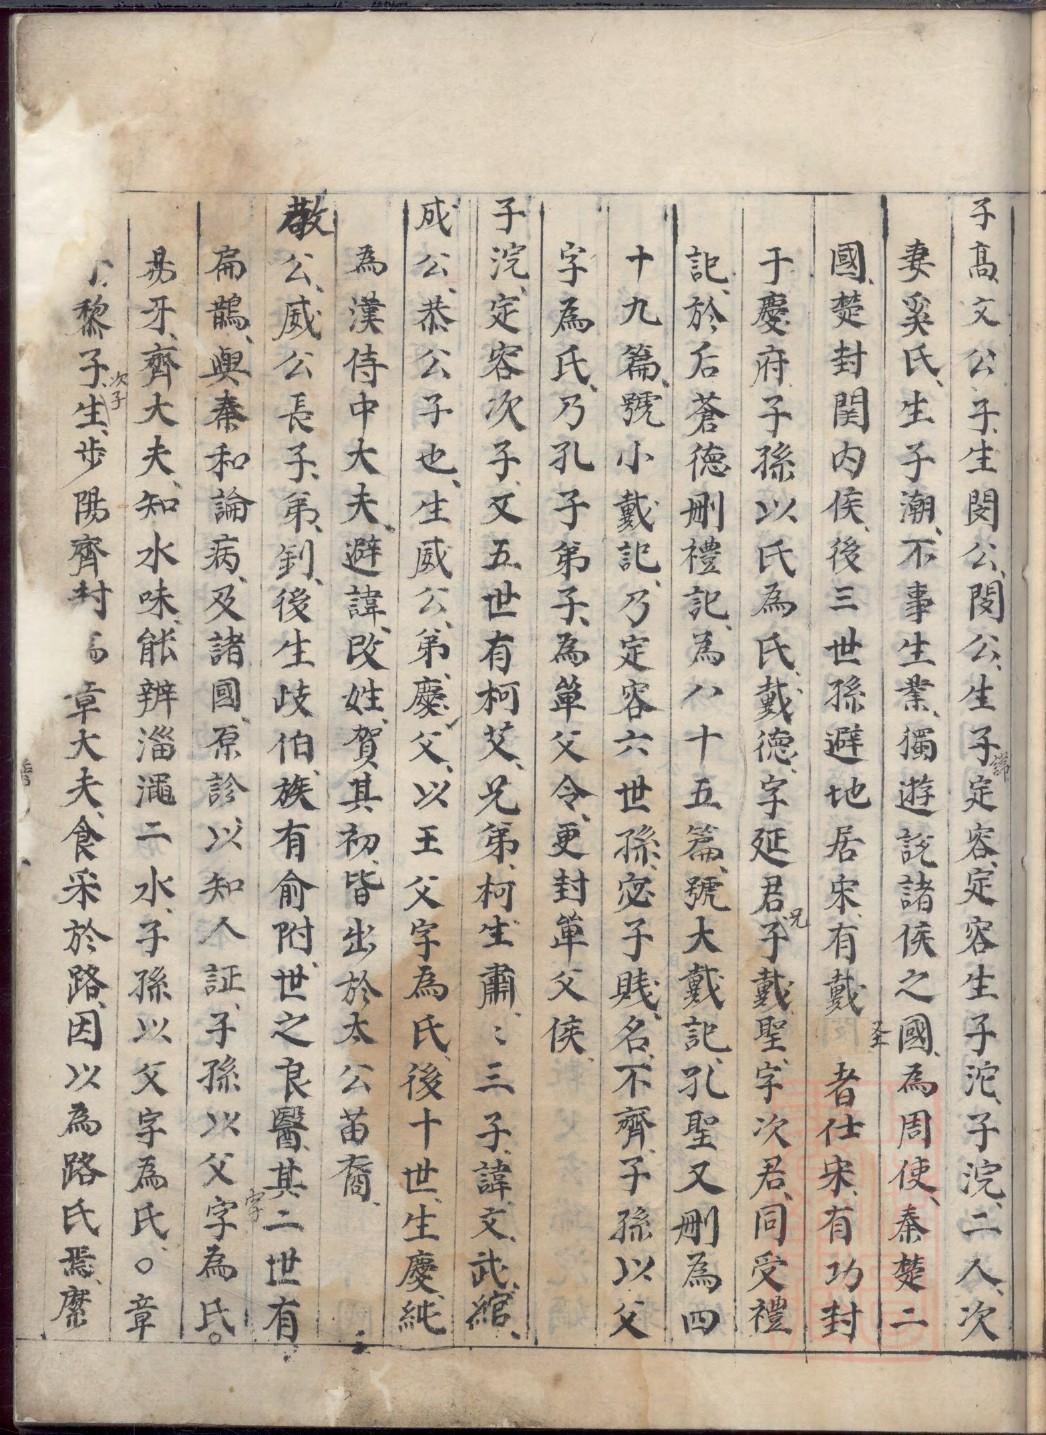 子高、文公子、生閔公、閔公、生子諱定容、定容生子沱、子浣、二人、次
妻奚氏、生子潮、不事生業、獨遊說諸侯之國、為周使、秦楚二
國、楚封関内侯、後三世孫避地居宋、有戴聖者仕宋、有功封
于慶府、子孫以氏為氏、戴德、字延君、兄子戴聖、字次君、同受禮
記、於后蒼德刪禮記、為八十五篇、號大戴記、孔聖又刪為四
十九篇、號小戴記、乃定容六世孫、宓子賤、名、不齊、子孫以父
字為氏、乃孔子弟子、為單父令、更封單父侯、
子浣、定容次子、又五世有柯艾、兄弟、柯生肅、〻三子、諱文、武、綰、
成公、恭公子也、生威公、弟、慶父、以王父字為氏、後十世、生慶、純
為漢侍中大夫、避諱、改姓、賀、其初、皆出於太公苗裔、
敬公、威公長子、弟、釗、後生歧伯、族有俞附、世之良醫、其二世有
扁鵲、與秦和論病、及諸國、原診、以知人証、子孫以父字字為氏。
易牙、齊大夫、知水味、能辨淄澠二水、子孫以父字為氏、○章
黎子、次子生、步陽齊封章大夫、食采於路、因以為路氏焉、縻